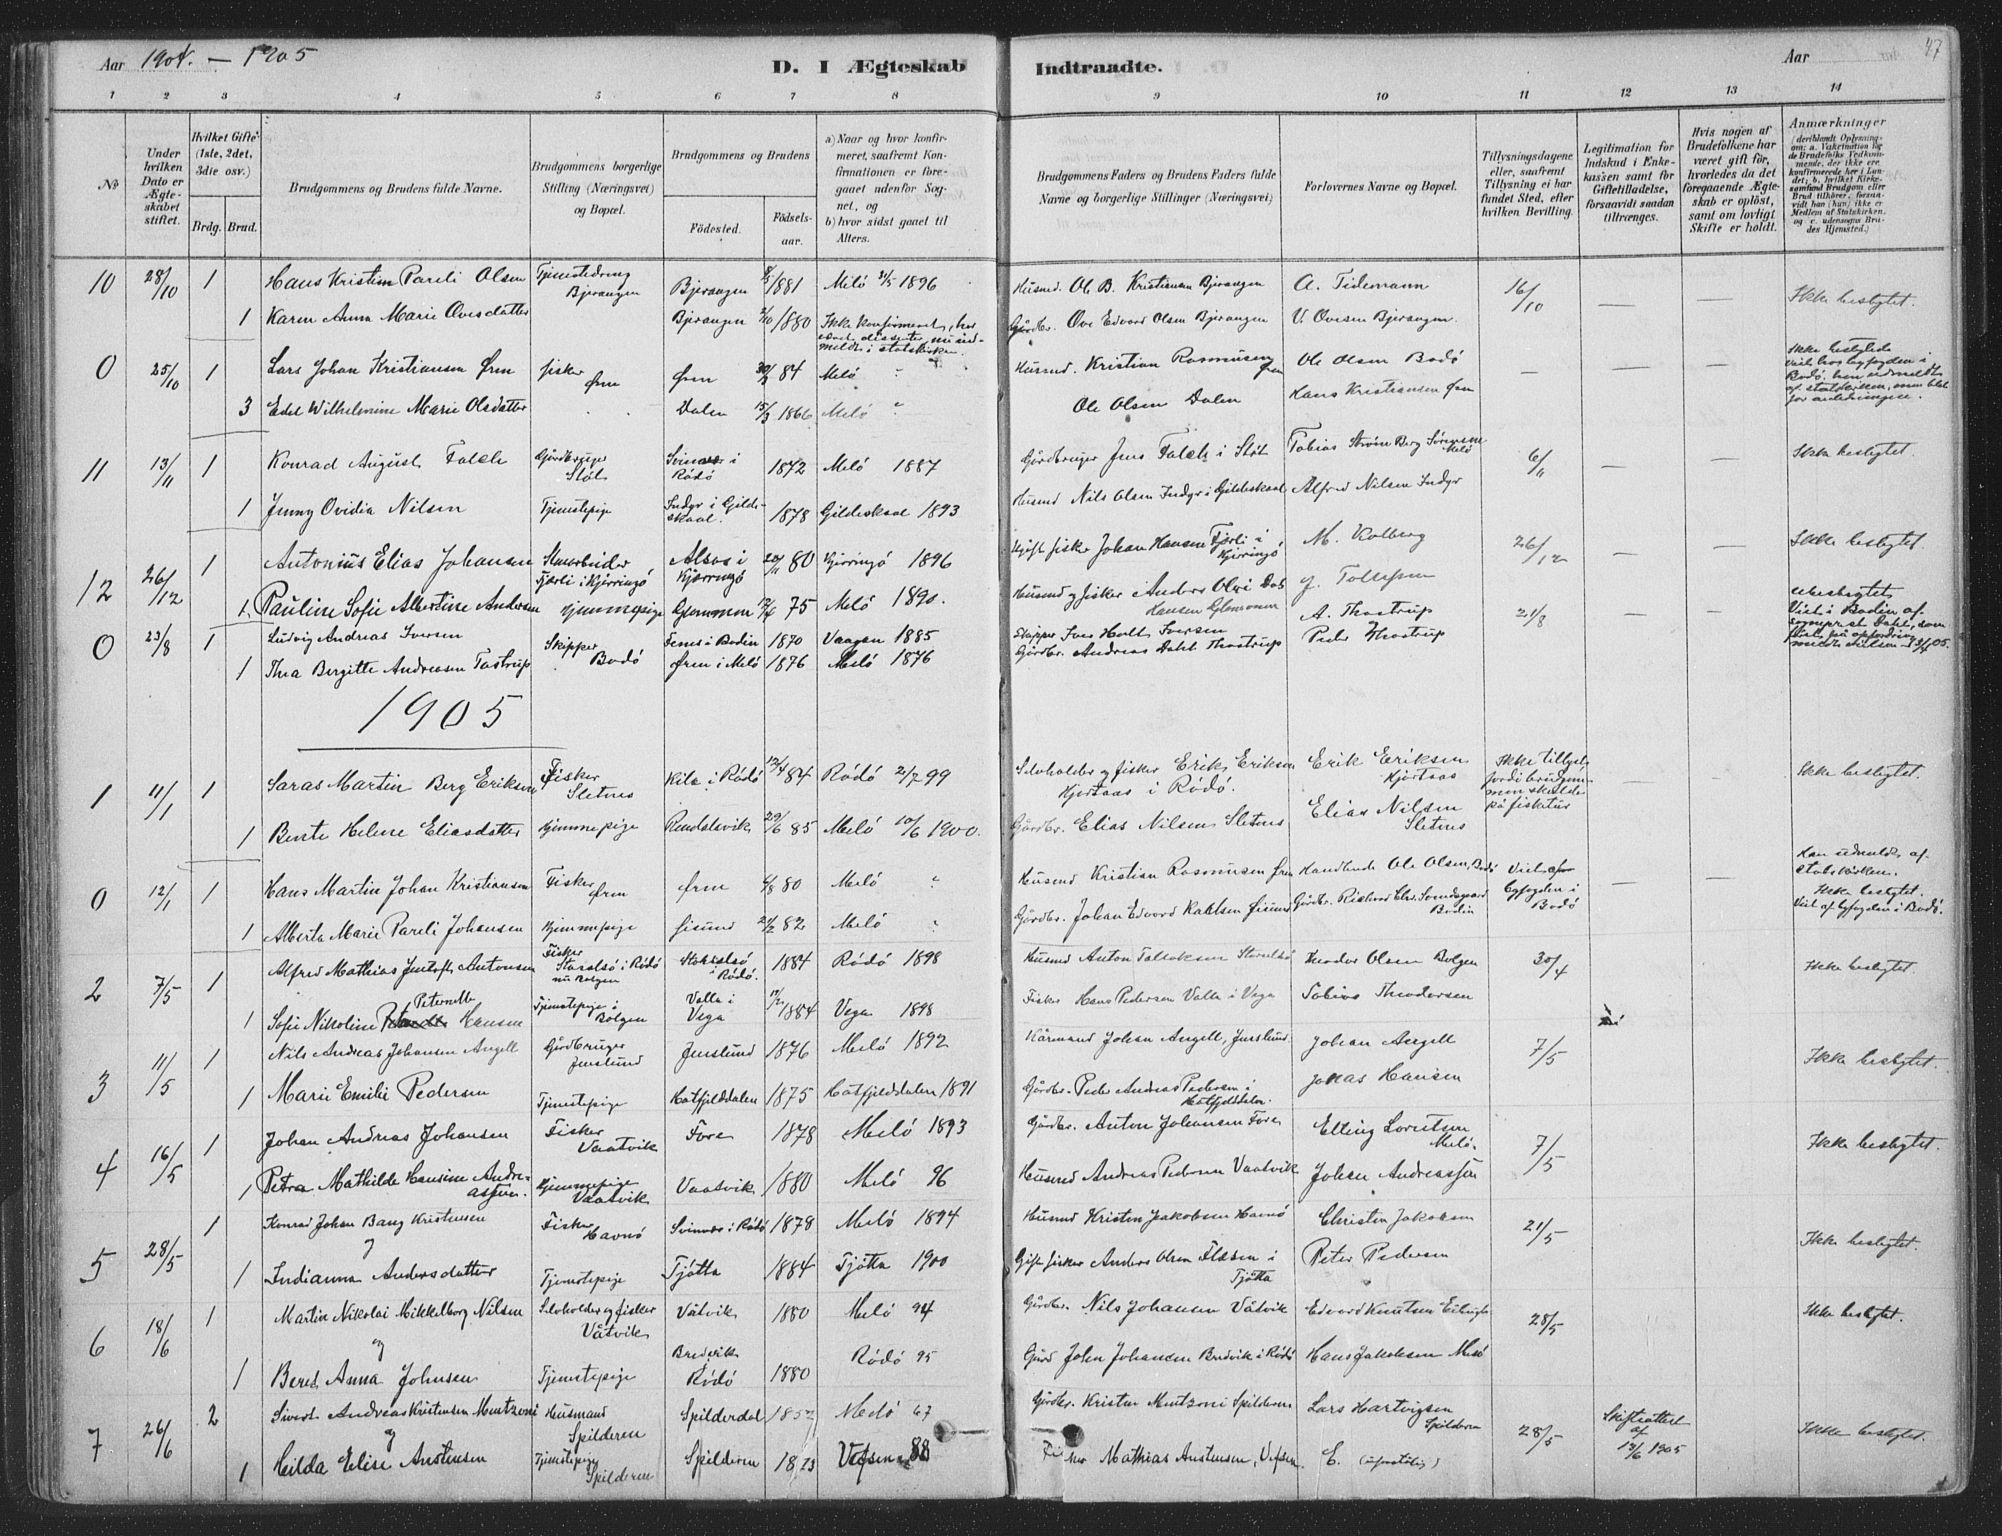 Aar 1904. — 1905
D. I Ægteskab Indtraadte.
Aar
47
1 2 3 4 5 6 7 8 9 10 11 12 13 14
No
Under hvilken Dato er Ægteskabet stiftet.
Hvilket Gifte (1ste, 2det, 3die osv.)
Brdg. Brud.
Brudgommens og Brudens fulde Navne.
Brudgommens borgerlige Stilling (Næringsvei) og Bopæl.
Brudgommens og Brudens
Fødested.
Fødsels-aar.
a) Naar og hvor konfirmeret, saafremt Konfirmationen er foregaaet udenfor Sognet, og
b) hvor sidst gaaet til Alters.
Brudgommens Faders og Brudens Faders fulde Navne og borgerlige Stillinger (Næringsvei)
Forlovernes Navne og Bopæl.
Tillysningsdagene eller, saafremt Tillysning ei har fundet Sted, efter hvilken Bevilling.
Legitimation for Indskud i Enkekassen samt for Giftetilladelse, forsaavidt saadan tiltrænges.
Hvis nogen af Brudefolkene har været gift før, hvorledes da det foregaaende Ægteskab er opløst, samt om lovligt Skifte er holdt.
Anmærkninger
10 28/10 1 Hans Kristian Pareli Olsen Tjenestedreng Bjerangen Bjerangen 1881 Melö 31/5 1896 Husmd. Ole B. Kristiansen Bjerangen A. Tidemann 16/10 — — Ikke beslegtet.
1 Karen Anna Marie Ovesdatter Bjerangen 1880 Ikke konfirmeret, har været dissenter, nu indmeldt i statskirken. Gårdbr. Ove Edvard Olsen Bjerangen V. Ovesen Bjerangen
0 25/10 1 Lars Johan Kristiansen Ørm fisker Ørm Ørm 84 Melö " Husmd. Kristian Rasmusen Ørm Ole Olsen Bodö — — — Ikke beslegtede
3 Edel Wilhelmine Marie Olsdatter Dalen 15/3 1866 Melö " Ole Olsen Dalen Hans Kristiansen Ørm
11 13/11 1 Konrad August Falch Gårdbruger Stöt Svinvær i Rödö 1872 Melö 1887 Gårdbruger Jens Falch i Stöt Tobias Ström Berg Sörensen Melö 6/11 — — Ikke beslegtet.
1 Jenny Ovidia Nilsen Tjenestepige Indyr i Gildeskaal. 1878 Gildeskaal 1893 Husmd Nils Olsen Indyr i Gildeskaal Alfred Nilsen Indyr
12 26/12 1 Antonius Elias Johansen Stenarbeider Fjærli i Kjerringö Alsos i Kjærringö 22/11 80 Kjerringö 1896 Gift fisker Johan Hansen Fjærli i Kjerringö M. Kolberg 26/12 — — Ikke beslegtet
1. Pauline Sofie Albertine Andersen hjemmepige Glommen 75 Melö 1890. Husmd og fisker Anders Olai Dos Hansen Glommen J. Tollefsen
0 23/8 1 Ludvig Andreas Iversen Skipper Bodö Fenes i Bodin 1870 Vaagan 1885 Skipper Iver Holt Iversen A. Thostrup 21/8 Ubeslegtet. Viet i Bodin af sogneprest Dahl,
1 Thea Bergitte Andreasen Tostrup Ørm i Melö 1876 Melö 1876 Gårdbr. Andreas Dahl Thostrup Peder Thostrup
1905
1 11/1 1 Saras Martin Berg Eriksen Fisker Sletnes Kila i Rödö 12/4 84 Rödö 2/7 99 Selvholder og fisker Erik Eriksen Kjörtaas i Rödö. Erik Eriksen Kjörtaas Ikke tillyst fordi brudgommen skulde på fisketur — — Ikke beslegtet.
1 Bente Helene Eliasdatter Hjemmepige Rendalsvik 29/6 85 Melö 10/6 1900. Gårdbr. Elias Nilsen Sletnes Elias Nilsen Sletnes
0 12/1 1 Hans Martin Johan Kristiansen Fisker Ørm Ørm 6/8 80 Melö " Husmd Kristian Rasmusen Ørm Handlende Ole Olsen, Bodö Viet af byfogden i Bodö — — Han udmeldt af statskirken. Ikke beslegtet. Viet af byfogden i Bodö.
1 Alberta Marie Pareli Johansen Hjemmepige Øisund 21/2 82 Melö " Gårdbr. Johan Edvard Kahlsen Øisund Gårdbr. Richard Chr. Bodin
2 7/5 1 Alfred Mathias Jentoft Antonsen Fisker Storselsö i Rödö nu Bolgen Storselsö i Rödö. 1884 Rödö 1898 Husmd Anton Tollaksen Storselsö Theodor Olsen Bolgen 30/4 Ikke beslegtet.
1 Sofie Nikoline Peternelle Hansen Tjenestepige i Bolgen Valla i Vega 1884 Vega 1898 Fisker Hans Pedersen Valla i Vega Tobias Theodorsen
3 11/5 1 Nils Andreas Johansen Angell Gårdbruger Jenslund Jenslund 1876 Melö 1892 Kårmand Johan Angell, Jenslund. Johan Angell 7/5 Ikke beslegtet.
1 Marie Emilie Pedersen Tjenestepige Hatfjelddalen 1875 Hatfjelddalen 1891 Gårdbr. Peder Andreas Pedersen i Hatfjelddalen. Jonas Hansen
4 16/5 1 Johan Andreas Johansen Fisker Vaatvik Fore 1878 Melö 1893 Gårdbr. Anton Johansen Fore Elling Loretsen Melö. 7/5 Ikke beslegtet.
1 Petra Mathilde Hansine Andreassen. Hjemmepige Vaatvik Vaatvik 1880 Melö 96 Husmd Andreas Pedersen Vaatvik Johan Andreassen
5 28/5 1 Konrad Johan Bang Kristensen Fisker Havnö Svinvær i Rödö 1878 Melö 1894 Husmd Kristen Jakobsen Havnö Christen Jakobsen 21/5 Ikke beslegtet.
og
1 Indianna Andersdatter Tjenestepige Tjötta 1884 Tjötta 1900 Gift fisker Anders Olsen Flæsen i Tjötta Peter Pedersen
6 18/6 1 Martin Nikolai Mikkelborg Nilsen Selvholder og fisker Våtvik Våtvik 1880 Melö 94 Gårdbr. Nils Johansen Våtvik Edvard Knutsen 28/5 Ikke beslegtet.
og
1 Beret Anna Johnsen Tjenestepige Bredvik Rödö 1880 Rödö 95 Gårdbr John Johansen Bredvik i Rödö Hans Jakobsen Melö
7 26/6 2 Sivert Andreas Kristensen Mentzoni Husmand Spilderen Spilderdal Melö 67 Gårdbr. Kristen Mentzoni Spilderen Lars Hartvigsen Spilderen 28/5 Skifteattest af 13/6 1905 Ikke beslegtet.
og
1 Hilda Elise Austensen Tjenestepige Spilderen Spilderen 1873 Vefsen 88 Fisker Mathias Austensen, Vefsen. E. (uforståelig)